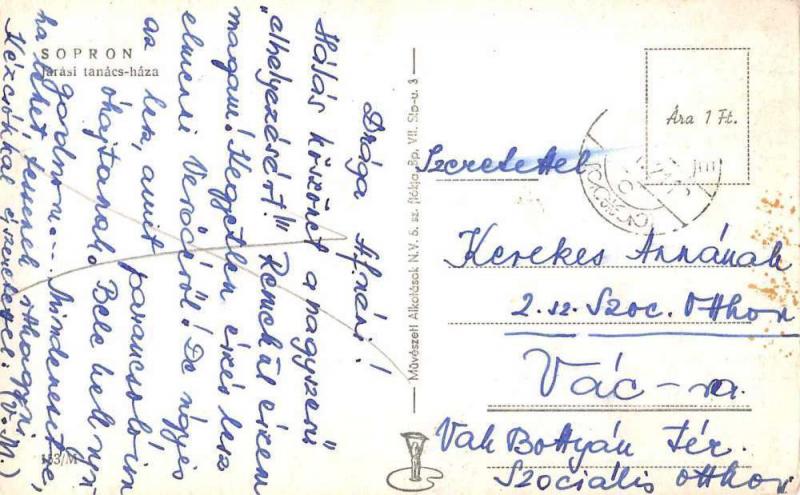 SOPRON
Járási tanács-háza
Drága Annási!
Hálás köszönet a nagyszerű
"elhelyezésért"! Remekül érzem
magam! Kegyetlen érzés lesz
elmenni Verőcéről! De ugye
az lesz, amit parancsolóim
óhajtanak. Bele kell nyu-
godnom... Mindenesetre,
ha lehet, tessenek otthagyni
Kézcsókkal és szeretettel: (V.M.)
153/M
Művészeti Alkotások N.V. 5. sz. fiókja, Bp. VII. Síp-u. 3
Ára 1 Ft.
Szeretettel
Kerekes Annának
2. sz. Szoc. Otthon
Vác-ra
Vak Bottyán tér.
Szociális otthon